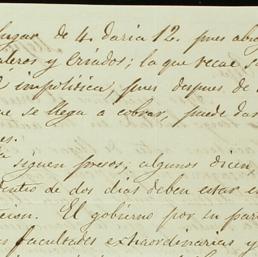 lugar de 4. daria 12. pues abo
leros y Criados; la que recae s
impolitica, pues despues de
ue se llega a cobrar, puede da
es.
siguen presos; algunos dicen
dentro de dos dias deben estar e
cion. El gobierno por su par
as facultades extraordinarias y